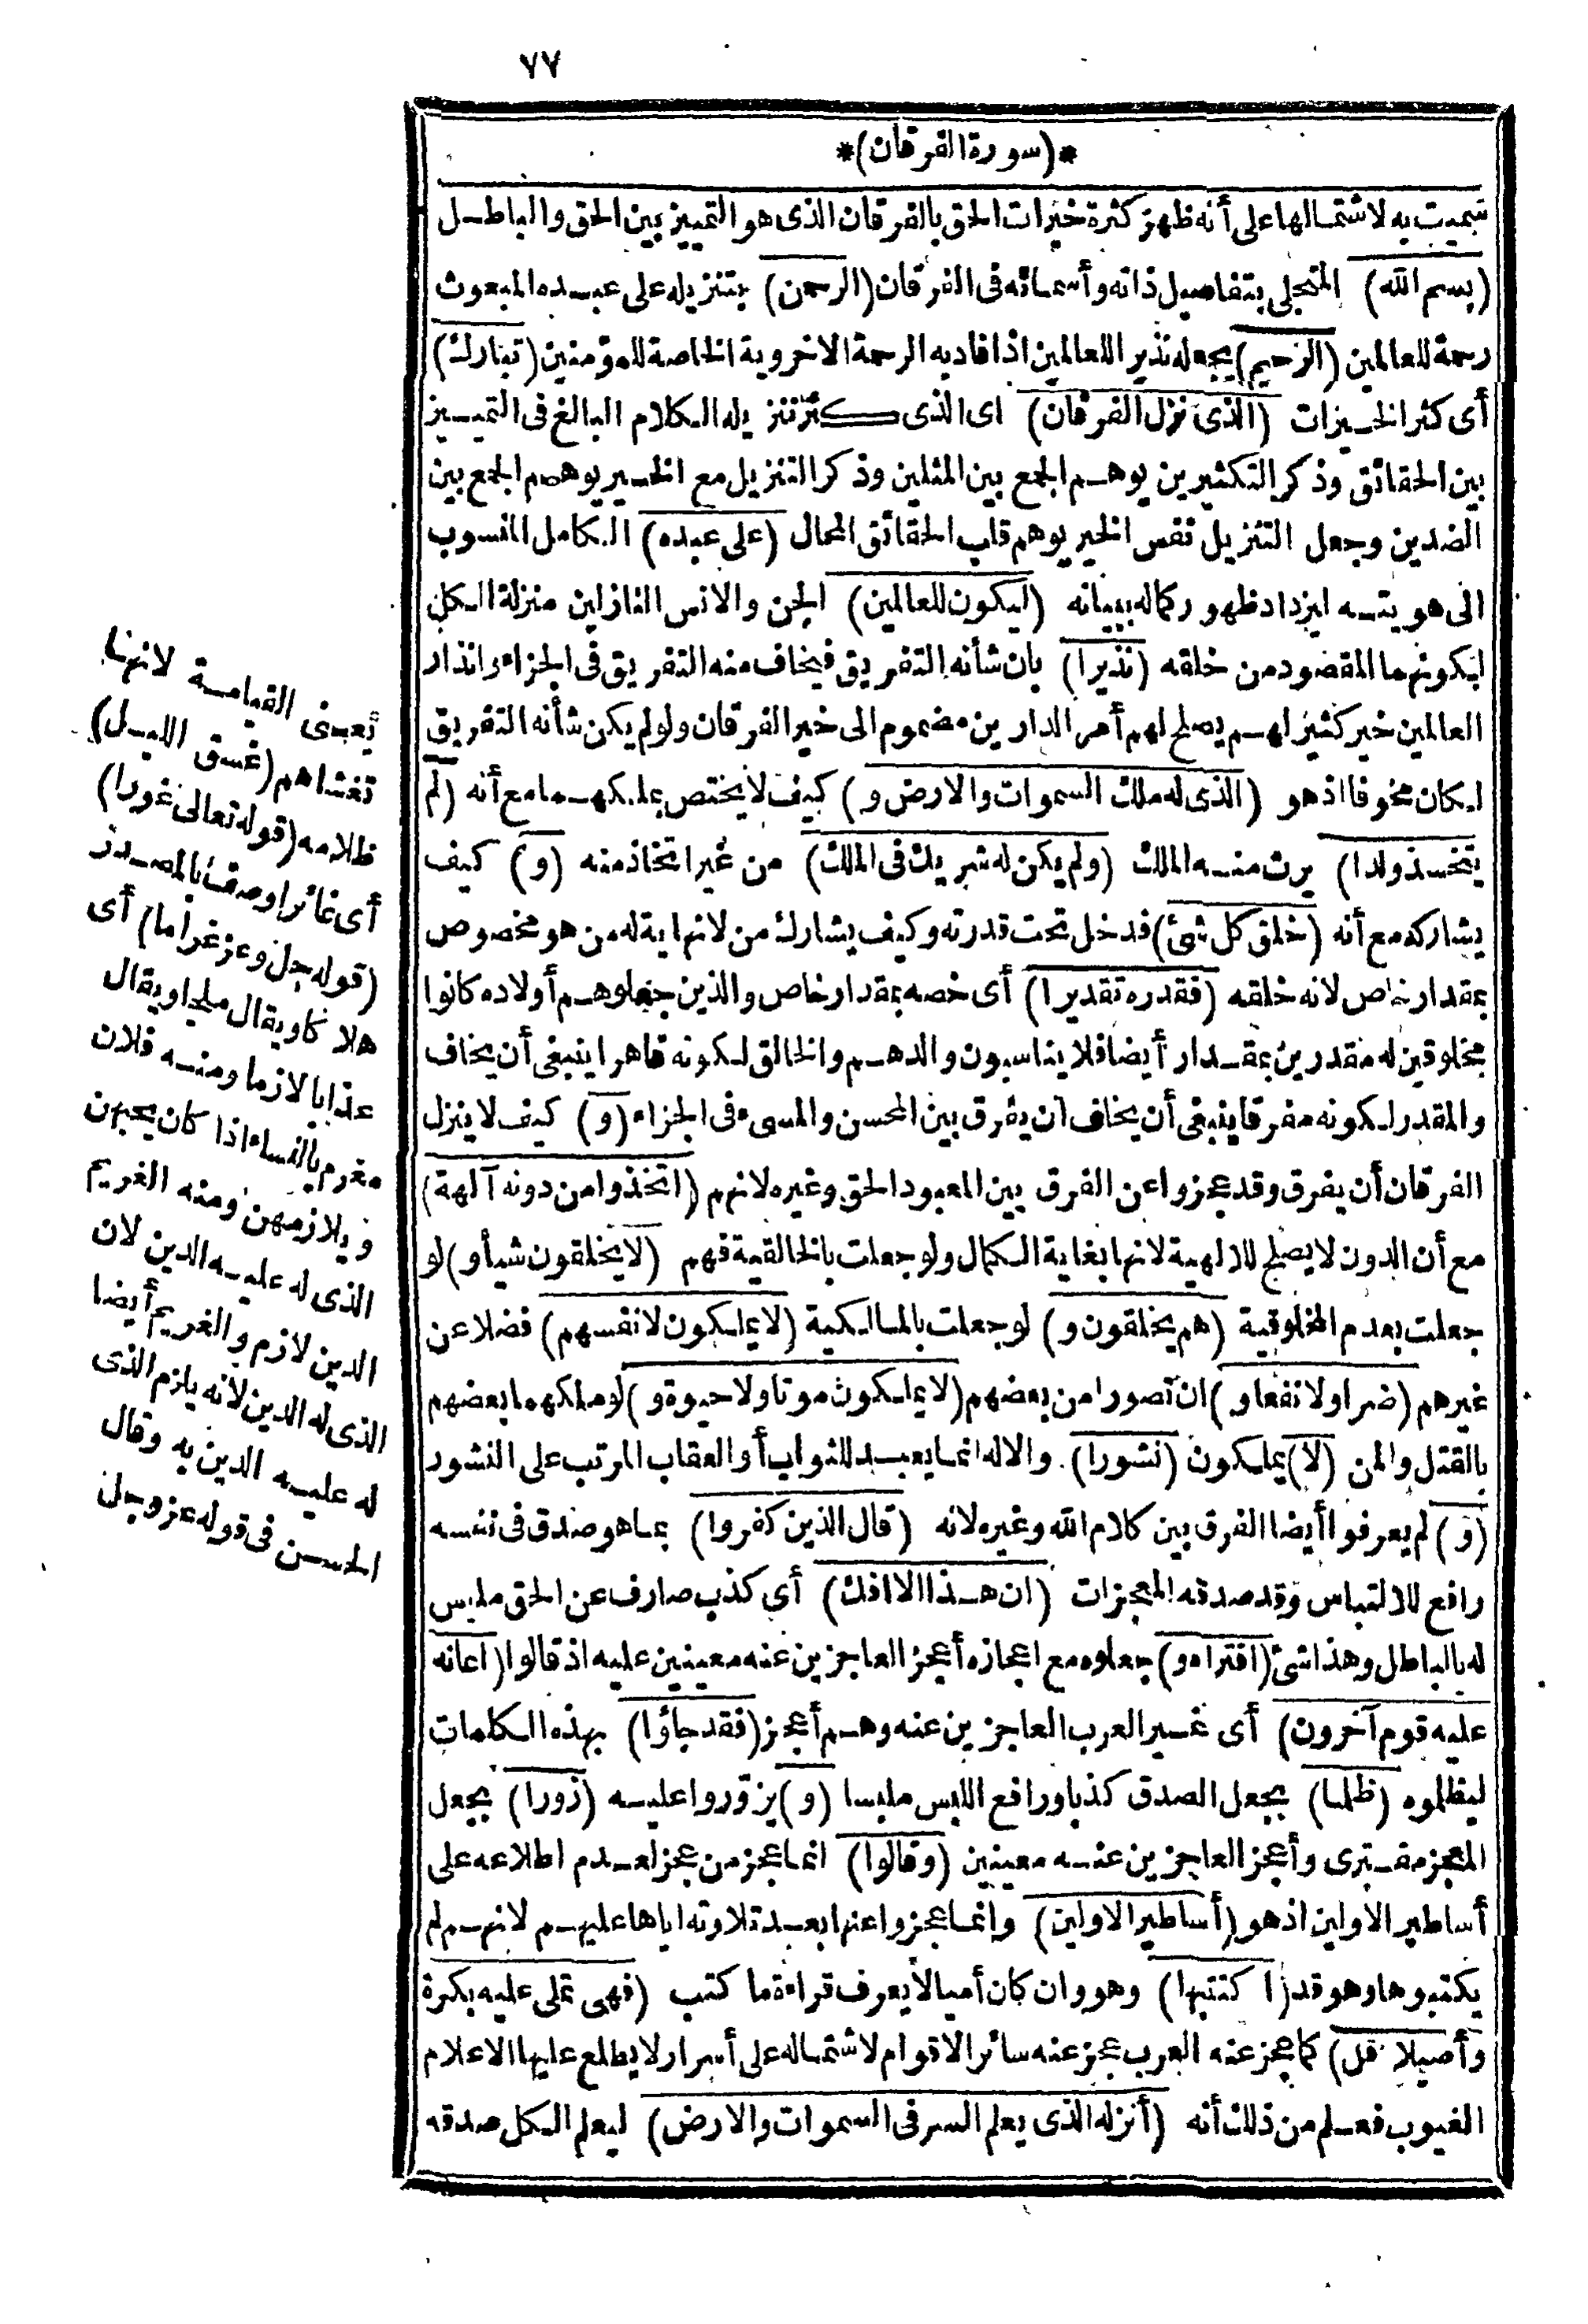 ٧٧
*(سورة الفرقان)*
سميت به لاشتمالها على أنه ظهر كثرة خيرات الحق بالفرقان الذى هو التمييز بين الحق والباطل
(بسم الله) المتجلى بتفاصيل ذاته وأسمائه فى الفرقان (الرحمن) بتنزيله على عبده المبعوث
رحمة للعالمين (الرحيم) بجعله نذيرا للعالمين اذ أفاد به الرحمة الاخروية الخاصة للمؤمنين (تبارك)
أى كثر الخيرات (الذى نزل الفرقان) اى الذى كثر تنزيله الكلام البالغ فى التمييز
بين الحقائق وذكر التكثيرين يوهم الجمع بين المثلين وذكر التنزيل مع الخير يوهم الجمع بين
الضدين وجعل التنزيل نفس الخير يوهم قلب الحقائق المحال (على عبده) الكامل المنسوب
الى هويته ليزداد ظهور كماله ببيانه (ليكون للعالمين) الجن والانس النازلين منزلة الكل
لكونهما المقصود من خلقه (نذيرا) بان شأنه التفريق فيخاف منه التفريق فى الجزاء وانذار
العالمين خير كثير لهم يصلح لهم أمر الدارين مضموم الى خير الفرقان ولو لم يكن شأنه التفريق
لكان مخوفا اذ هو (الذى له ملك السموات والارض و) كيف لا يختص بملكهما مع أنه (لم
يتخذ ولدا) يرث منه الملك (ولم يكن له شريك فى الملك) من غير اتخاذ منه (و) كيف
يشاركه مع أنه (خلق كل شئ) فدخل تحت قدرته وكيف يشارك من لا نهاية له من هو مخصوص
بمقدار خاص لانه خلقه (فقدره تقديرا) أى خصه بمقدار خاص والذين جعلوهم أولاده كانوا
مخلوقين له مقدرين بمقدار أيضا فلا يناسبون والدهم والخالق لكونه قاهرا ينبغى أن يخاف
والمقدر لكونه مفرقا ينبغى أن يخاف ان يفرق بين المحسن والمسىء فى الجزاء (و) كيف لا ينزل
الفرقان أن يفرق وقد عجزوا عن الفرق بين المعبود الحق وغيره لانهم (اتخذوا من دونه آلهة)
مع أن الدون لا يصلح للالهية لانها بغاية الكمال ولو جعلت بالخالقية فهم (لا يخلقون شيأ و) لو
جعلت بعدم المخلوقية (هم يخلقون و) لو جعلت بالمالكية (لا يملكون لانفسهم) فضلا عن
غيرهم (ضرا ولا نفعا و) ان تصورا من بعضهم (لا يملكون موتا ولا حيوة و) لو ملكهما بعضهم
بالقتل والمن (لا) يملكون (نشورا). والاله انما يعبد للثواب أو العقاب المرتب على النشور
(و) لم يعرفوا أيضا الفرق بين كلام الله وغيره لانه (قال الذين كفروا) بما هو صدق فى نفسه
رافع للالتباس وقد صدقه المعجزات (ان هذا الا افك) أى كذب صارف عن الحق ملبس
له بالباطل وهذا شئ (افتراه و) جعلوه مع اعجازه أعجز العاجزين عنه معينين عليه اذ قالوا (اعانه
عليه قوم آخرون) أى غير العرب العاجزين عنه وهم أعجز (فقد جاؤا) بهذه الكلمات
ليظلموه (ظلما) بجعل الصدق كذبا ورافع اللبس ملبسا (و) يزوروا عليه (زورا) بجعل
المعجز مفترى وأعجز العاجزين عنه معينين (وقالوا) انما عجز من عجز لعدم اطلاعه على
أساطير الاولين اذ هو (أساطير الاولين) وانما عجزوا عنها بعد تلاوته اياها عليهم لانهم لم
يكتبوها وهو قد (اكتتبها) وهو وان كان أميا لا يعرف قراءة ما كتب (فهى تملى عليه بكرة
وأصيلا قل) كما عجز عنه العرب عجز عنه سائر الاقوام لاشتماله على أسرار لا يطلع عليها الا علام
الغيوب فعلم من ذلك أنه (أنزله الذى يعلم السر فى السموات والارض) ليعلم الكل صدقه
يعنى القيامة لانها
تغشاهم (غسق الليل)
ظلامه (قوله تعالى غورا)
أى غائرا وصف بالمصدر
(قوله جل وعز غراما) أى
هلاكا ويقال ملحا ويقال
عذابا لازما ومنه فلان
مغرم بالنساء اذا كان يحبهن
ويلازمهن ومنه الغريم
الذى له عليه الدين لان
الدين لازم والغريم أيضا
الذى له الدين لانه يلزم الذى
له عليه الدين به وقال
الحسن فى قوله عز وجل